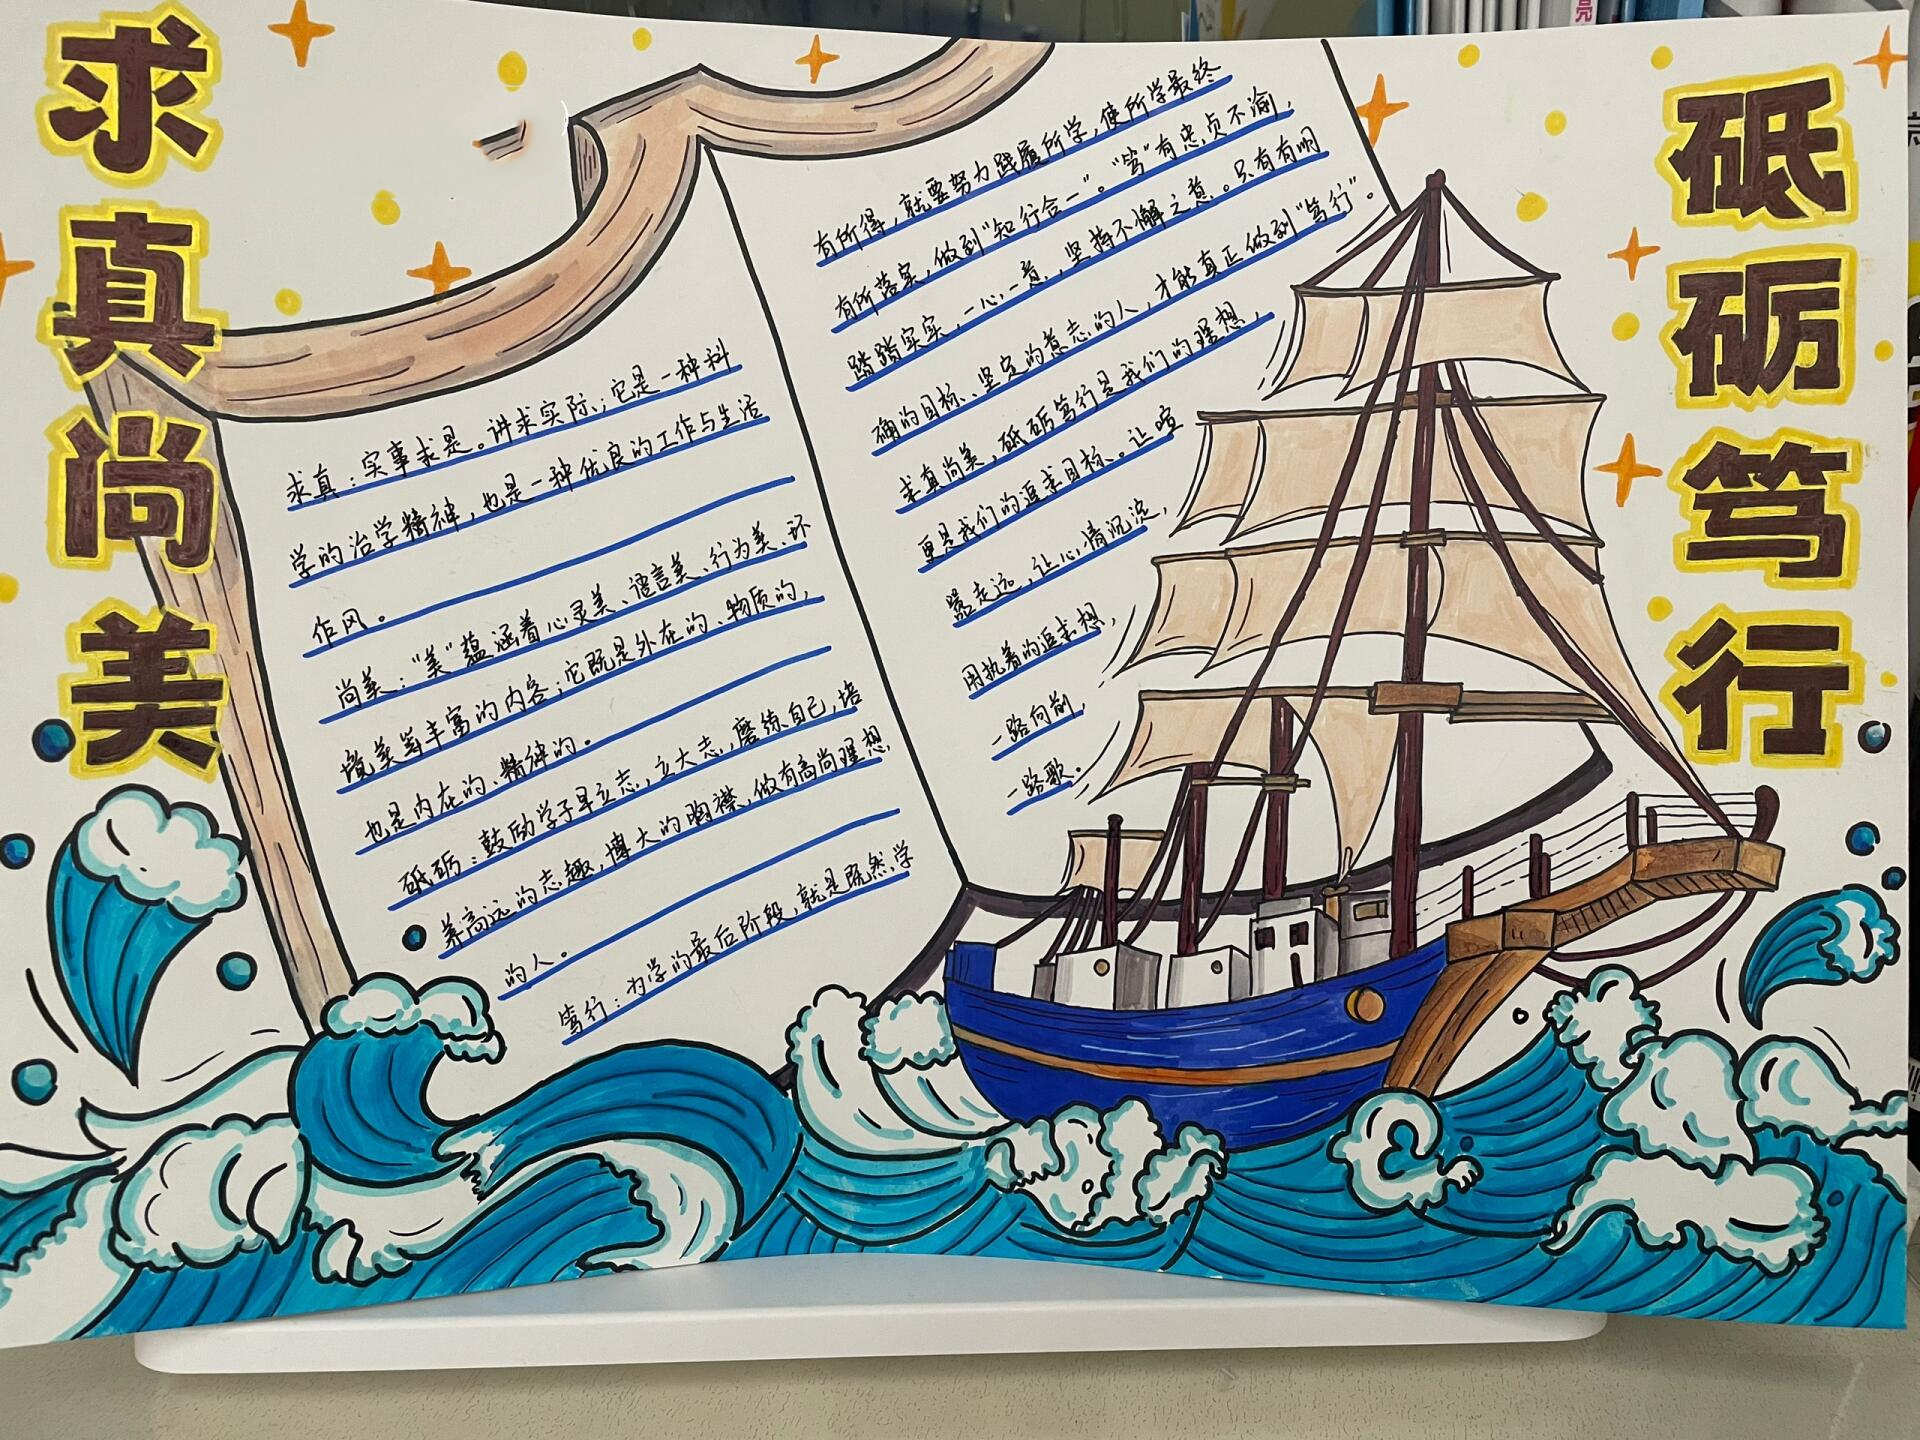 求真尚美
砥砺笃行
求真：实事求是。讲求实际；它是一种科
学的治学精神，也是一种优良的工作与生活
作风。
尚美：“美”蕴涵着心灵美、语言美、行为美、环
境美等丰富的内容；它既是外在的、物质的，
也是内在的、精神的。
砥砺：鼓励学子早立志，立大志，磨练自己，培
养高远的志趣，博大的胸襟，做有高尚理想
的人。
笃行：为学的最后阶段，就是既然学
有所得，就要努力践履所学，使所学最终
有所落实，做到“知行合一”。“笃”有忠贞不渝，
踏踏实实，一心一意，坚持不懈之意。只有有明
确的目标、坚定的意志的人，才能真正做到“笃行”。
求真尚美，砥砺笃行是我们的理想，
更是我们的追求目标。让喧
嚣走远，让心情沉淀，
用执着的追求想，
一路向前，
一路歌。